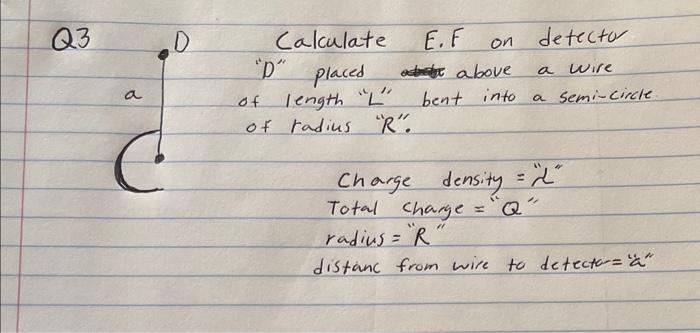 Q3
D
Calculate E.F on detector
"D" placed above a wire
a
of length "L" bent into a semi-circle.
of radius "R".
Charge density = "λ"
Total charge = "Q"
radius = "R"
distanc from wire to detector = "a"